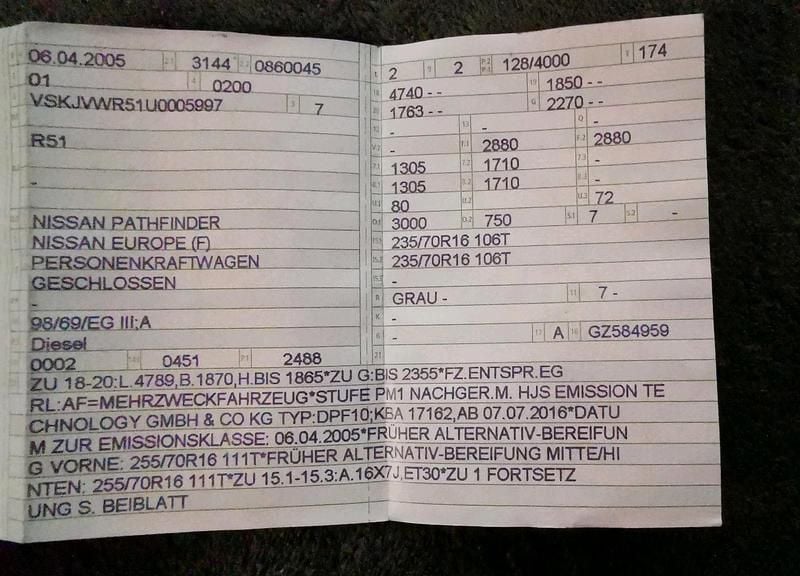 06.04.2005 3144 0860045
01 0200
VSKJVWR51U0005997 7
R51
-
NISSAN PATHFINDER
NISSAN EUROPE (F)
PERSONENKRAFTWAGEN
GESCHLOSSEN
-
98/69/EG III;A
Diesel
0002 0451 2488
2 2 128/4000 174
4740 - - 1850 - -
1763 - - 2270 - -
- - -
- 2880 2880
1305 1710 -
1305 1710 -
80 72
3000 750 7 -
235/70R16 106T
235/70R16 106T
-
GRAU - 7 -
-
- A GZ584959
ZU 18-20:L.4789,B.1870,H.BIS 1865*ZU G:BIS 2355*FZ.ENTSPR.EG
RL:AF=MEHRZWECKFAHRZEUG*STUFE PM1 NACHGER.M. HJS EMISSION TE
CHNOLOGY GMBH & CO KG TYP:DPF10;KBA 17162,AB 07.07.2016*DATU
M ZUR EMISSIONSKLASSE: 06.04.2005*FRÜHER ALTERNATIV-BEREIFUN
G VORNE: 255/70R16 111T*FRÜHER ALTERNATIV-BEREIFUNG MITTE/HI
NTEN: 255/70R16 111T*ZU 15.1-15.3:A.16X7J,ET30*ZU 1 FORTSETZ
UNG S. BEIBLATT